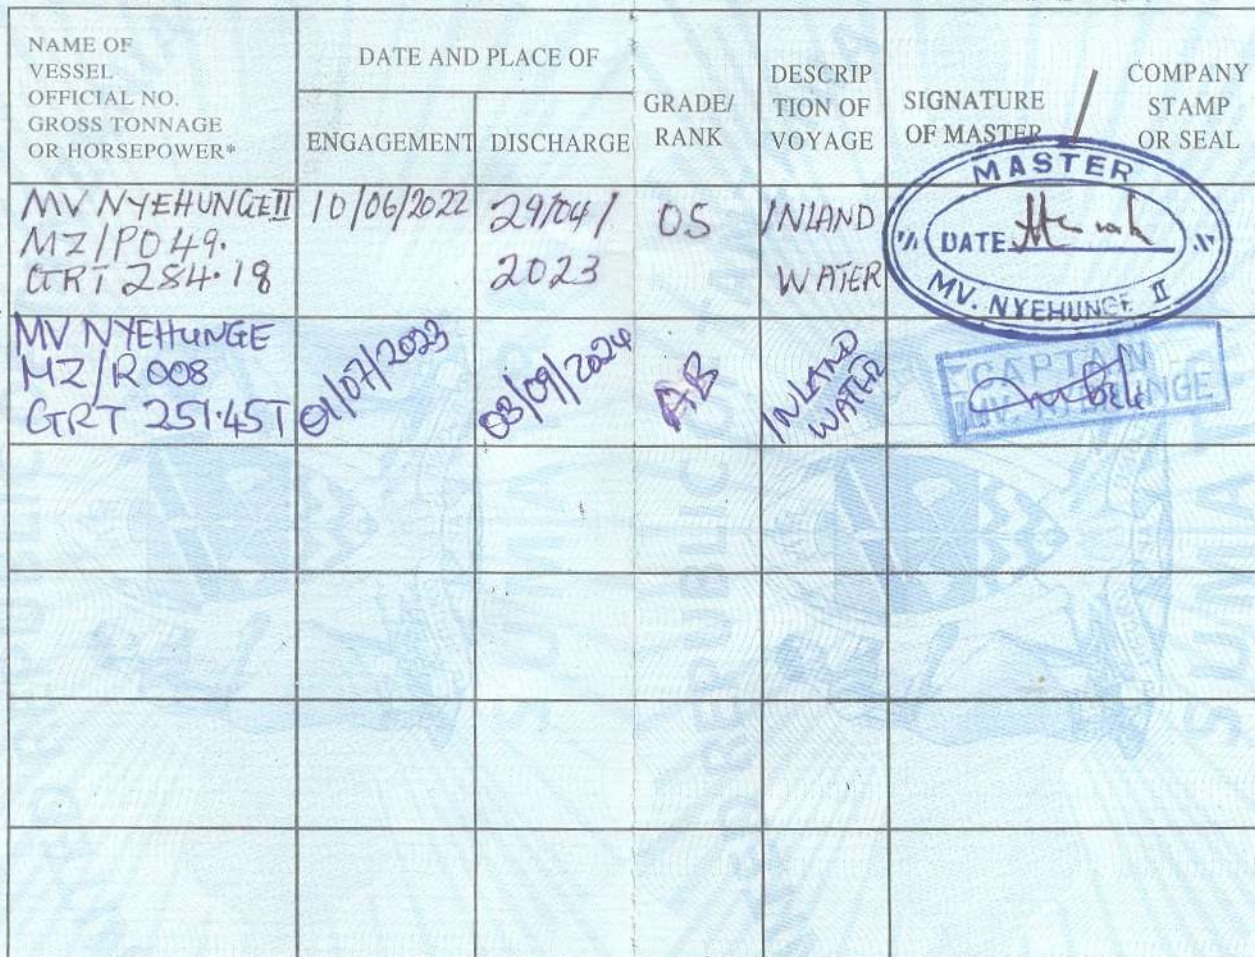 NAME OF
VESSEL
OFFICIAL NO.
GROSS TONNAGE
OR HORSEPOWER*
DATE AND PLACE OF
ENGAGEMENT
DISCHARGE
GRADE/
RANK
DESCRIP
TION OF
VOYAGE
SIGNATURE
OF MASTER
COMPANY
STAMP
OR SEAL
MV NYEHUNGE II
MZ/P049.
GRT 284.18
10/06/2022
29/04/
2023
OS
INLAND
WATER
MASTER
DATE
MV. NYEHUNGE II
MV NYEHUNGE
MZ/R008
GRT 251.45T
01/07/2023
03/09/2024
AB
INLAND
WATER
CAPTAIN
MV. NYEHUNGE